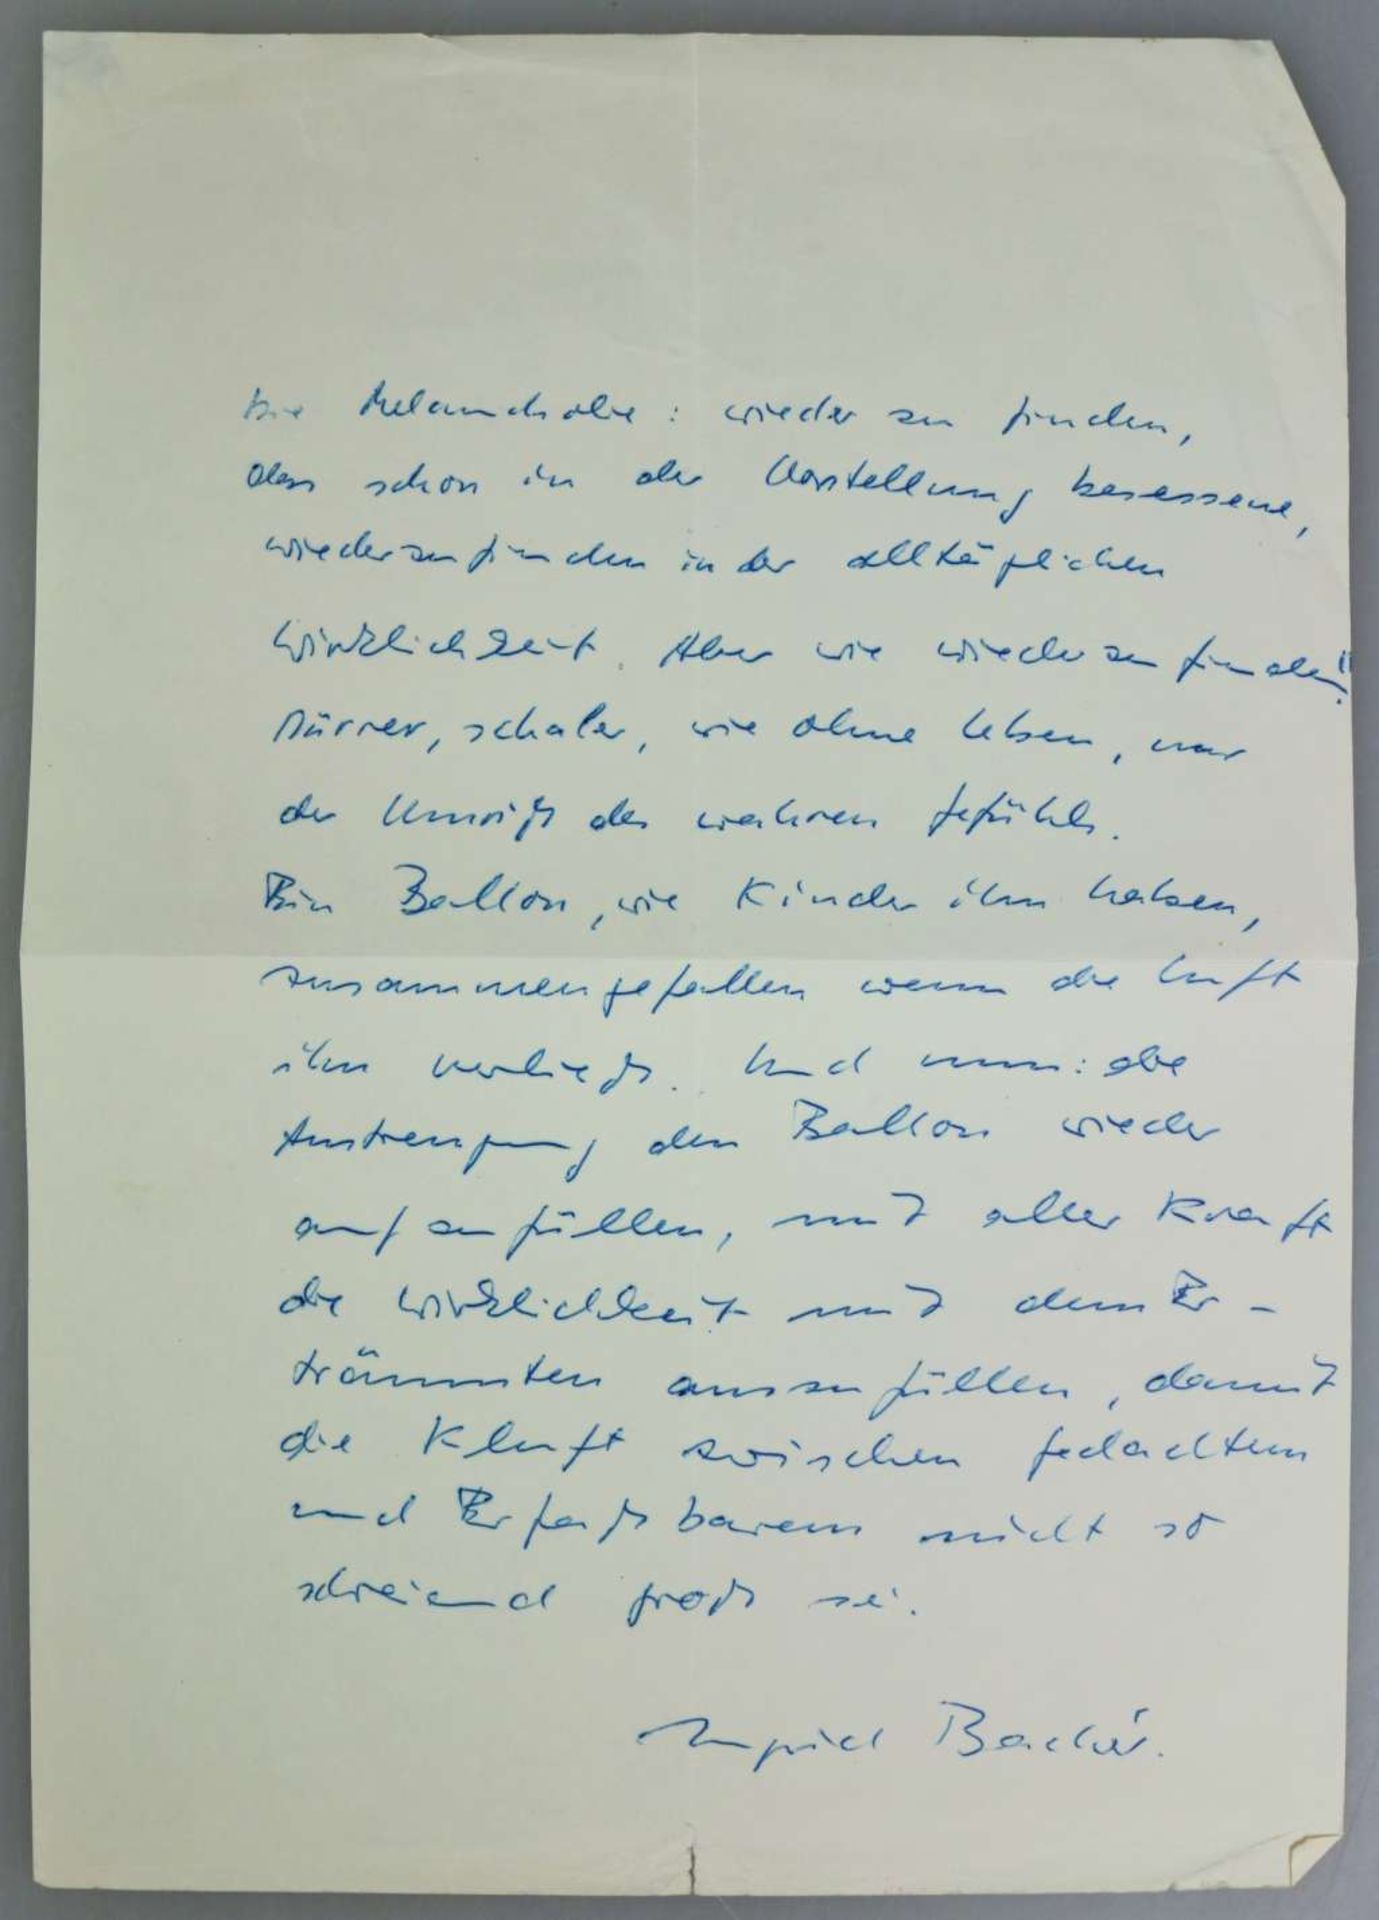 Die Melancholie: wieder zu finden,
das schon in der Vorstellung besessene,
wiederzufinden in der alltäglichen
Wirklichkeit. Aber wie wiederzufinden!!
Dürrer, schaler, wie ohne Leben, nur
der Umriß des wahren Gefühls.
Ein Ballon, wie Kinder ihn haben,
zusammengefallen wenn die Luft
ihn verließ. Und nun: die
Anstrengung den Ballon wieder
aufzufüllen, mit aller Kraft
die Wirklichkeit mit dem Er-
träumten auszufüllen, damit
die Kluft zwischen Gedachtem
und Erfaßbarem nicht so
schreiend groß sei.
Ingrid Bachér.